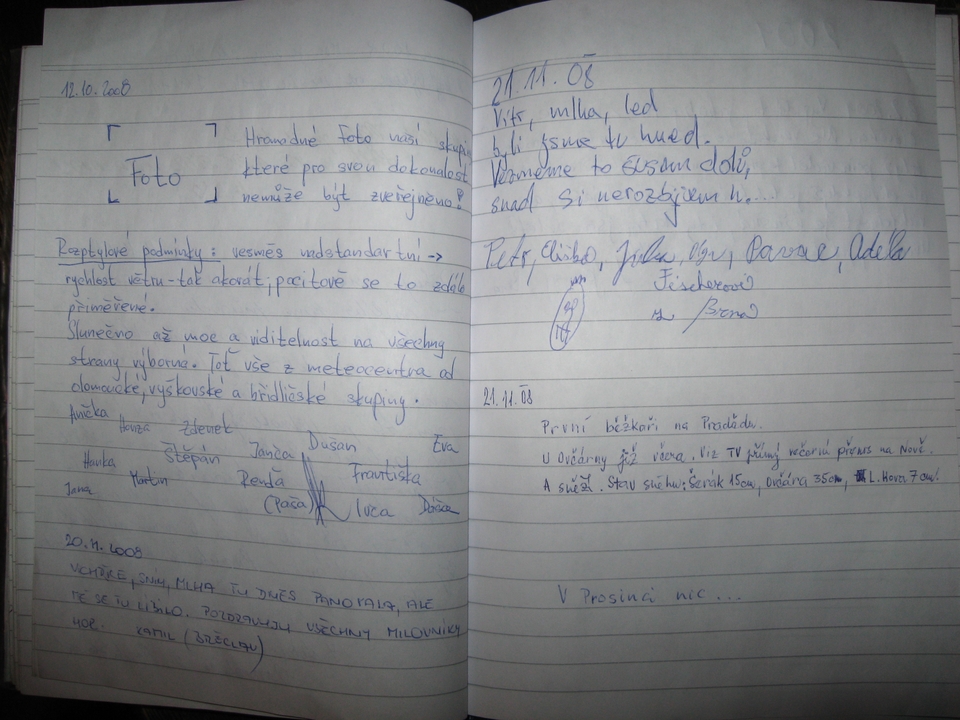 12.10.2008
Foto
Hromadné foto naší skupin
které pro svou dokonalost
nemůže být zveřejněno!
Rozptylové podmínky: vesměs nadstandartní →
rychlost větru - tak akorát, pocitově se to zdálo
přiměřené.
Slunečno až moc a viditelnost na všechny
strany výborná. Toť vše z meteocentra od
olomoucké, vyškovské a břidličské skupiny.
Anička
Honza Zdenek
Dušan Eva
Štěpán Janča
Hanka
Martin Renďa Františka
Jana
(Páča) Ivca
20.11.2008
VICHŘICE, SNÍH, MLHA TU DNES PANOVALA, ALE
MĚ SE TU LÍBILO. POZDRAVUJU VŠECHNY MILOVNÍKY
HOR. KAMIL (BŘECLAV)
21.11.08
Vítr, mlha, led
byli jsme tu hned.
Vezmeme to šusem dolů,
snad si nerozbijem h....
Petr, Eliška, Jirka, Adéla
Fischerovi
z Brna
21.11.08
První běžkaři na Pradědu.
U Ovčárny již včera. Viz TV přímý večerní přenos na Nově.
A sněží. Stav sněhu: Šerák 15cm, Ovčárna 35cm, L. Hora 7cm!
V Prosinci nic...